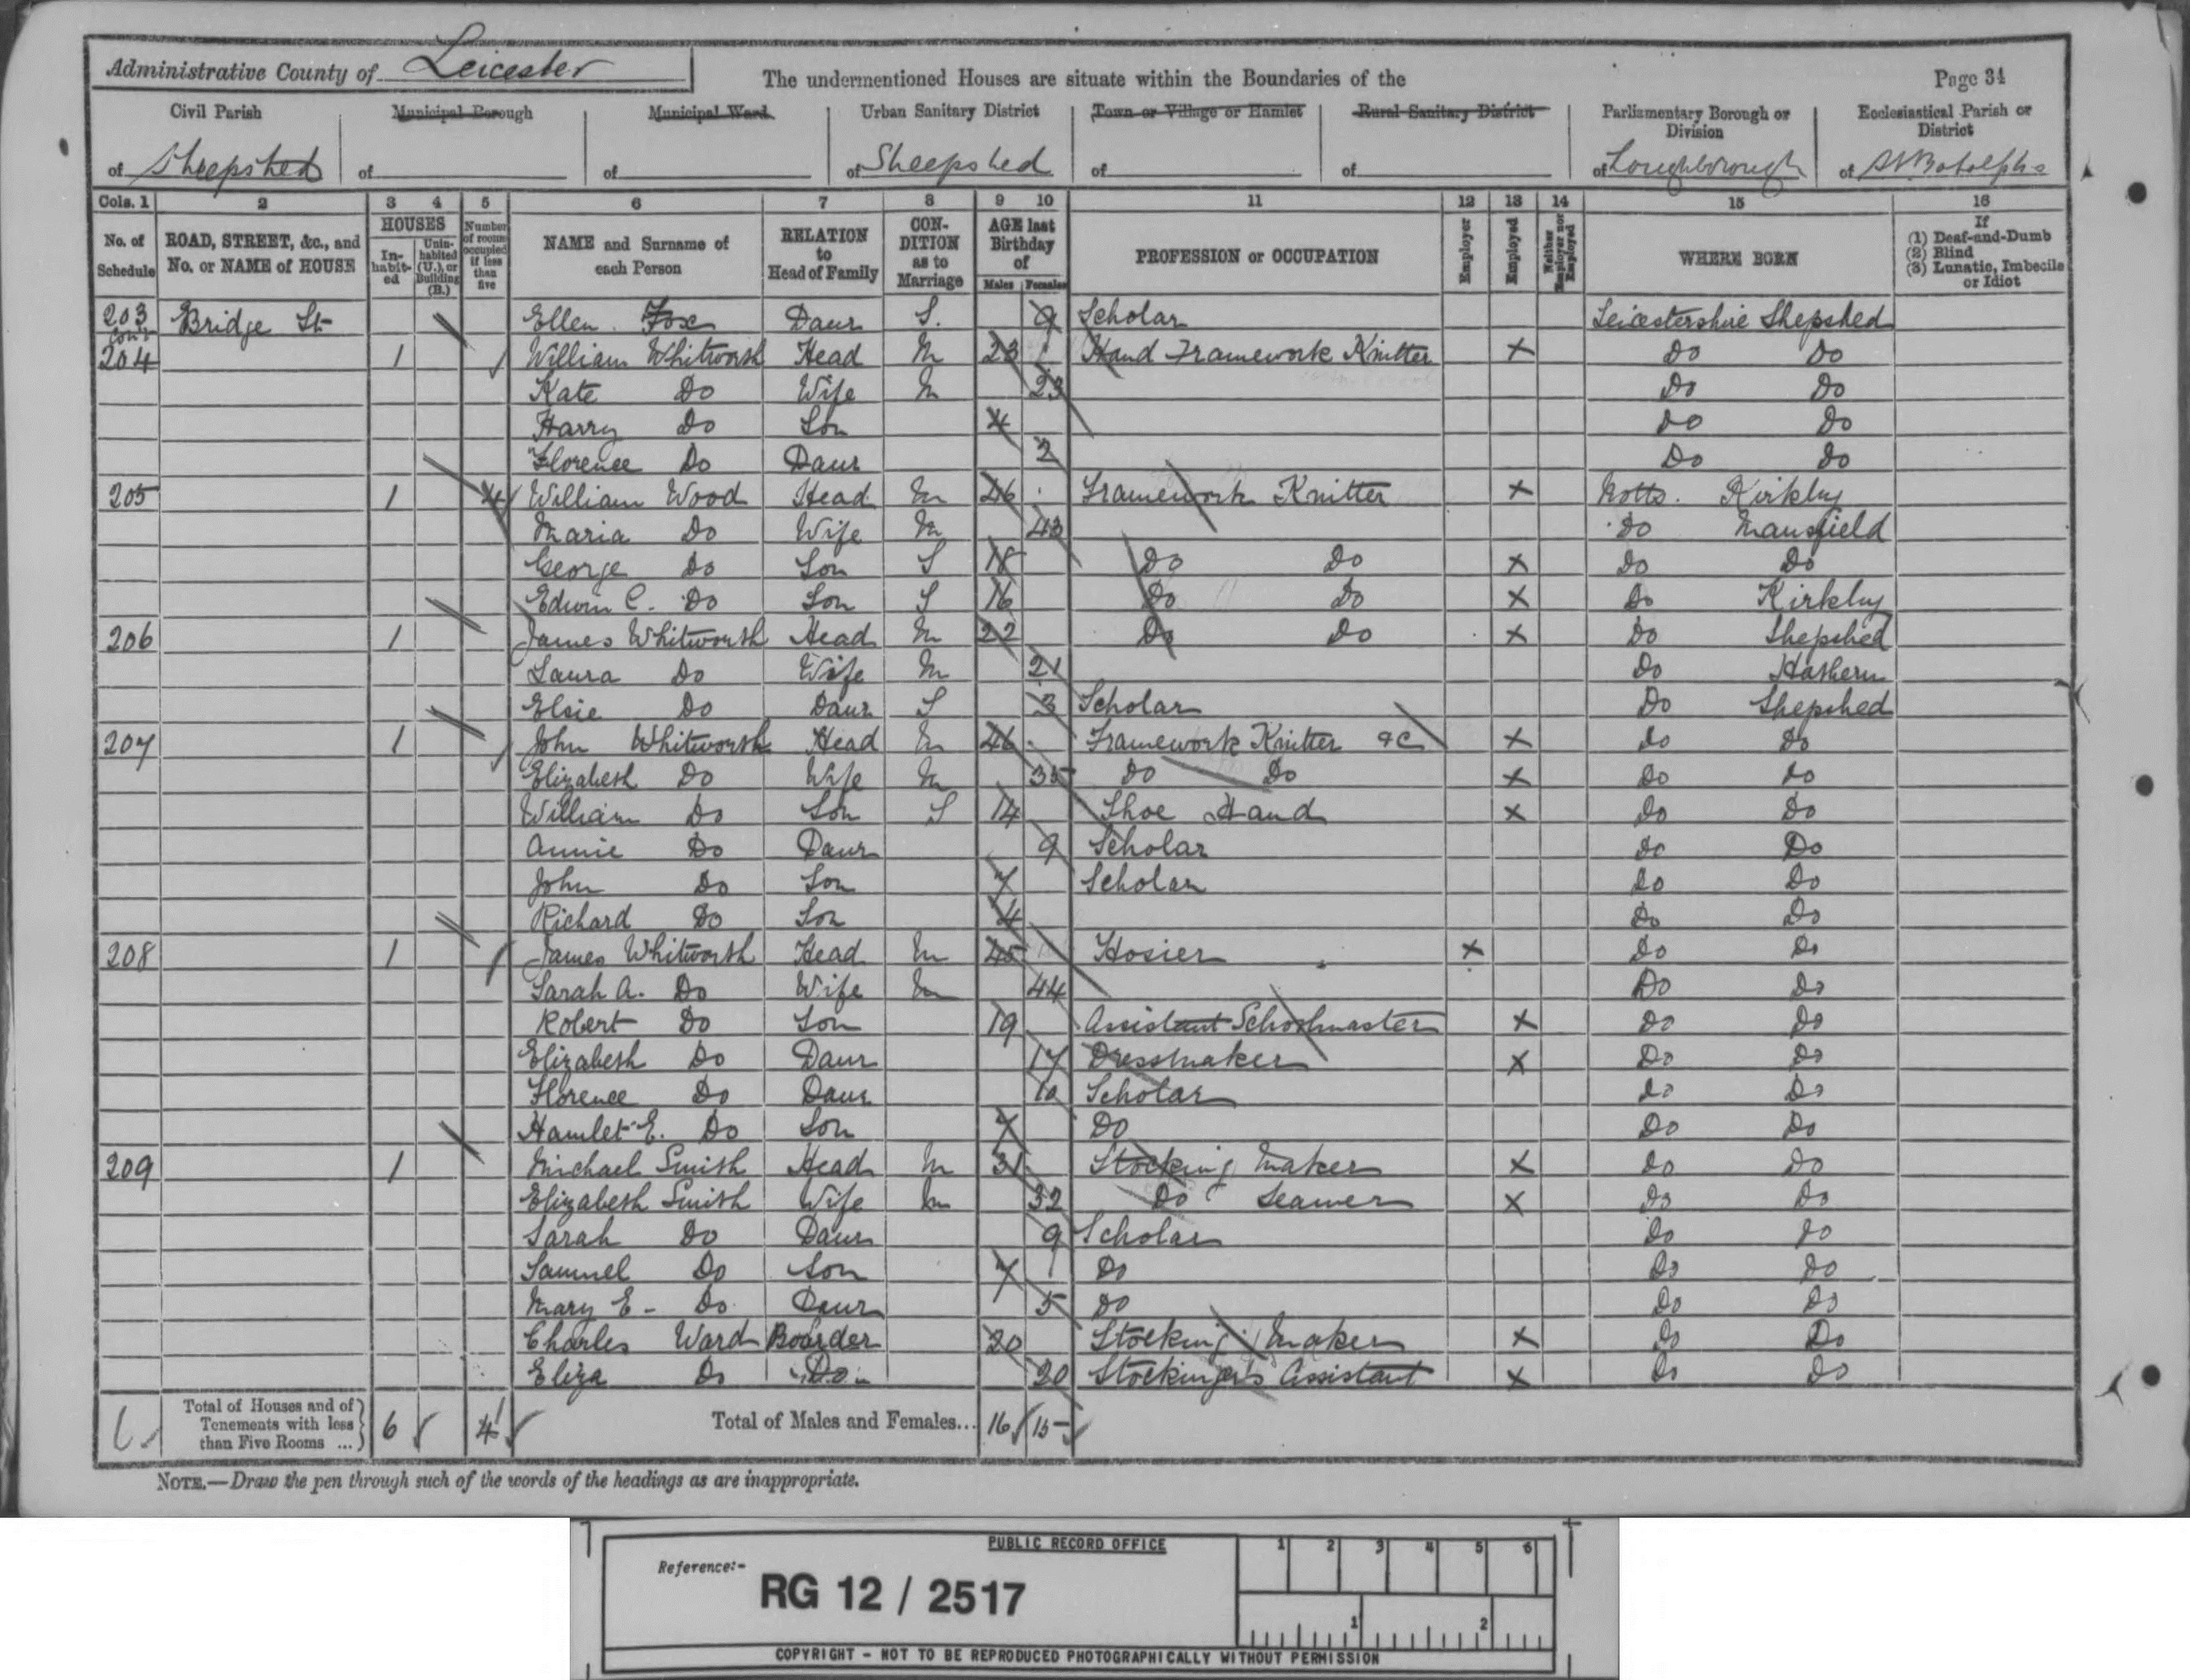 Administrative County of Leicester
The undermentioned Houses are situate within the Boundaries of the
Page 34
Civil Parish of Sheepshed
Municipal Borough of
Municipal Ward of
Urban Sanitary District of Sheepshed
Town or Village or Hamlet of
Rural Sanitary District of
Parliamentary Borough or Division of Loughborough
Ecclesiastical Parish or District of St. Botolphs
Cols. 1 2 3 4 5 6 7 8 9 10 11 12 13 14 15 16
No. of Schedule
ROAD, STREET, &c., and No. or NAME of HOUSE
HOUSES
In-habit-ed
Unin-habited (U.), or Building (B.)
Number of rooms occupied if less than five
NAME and Surname of each Person
RELATION to Head of Family
CON-DITION as to Marriage
AGE last Birthday of
Males Females
PROFESSION or OCCUPATION
Employer
Employed
Neither Employer nor Employed
WHERE BORN
If (1) Deaf-and-Dumb (2) Blind (3) Lunatic, Imbecile or Idiot
203 cont Bridge St Ellen Fox Daur S. 9 Scholar Leicestershire Shepshed
204 1 William Whitworth Head M 23 Hand Framework Knitter X Do Do
Kate Do Wife M 23 Do Do
Harry Do Son 4 Do Do
Florence Do Daur 2 Do Do
205 1 4 William Wood Head M 46 Framework Knitter X Notts. Kirkby
Maria Do Wife M 43 Do Mansfield
George Do Son S 18 Do Do X Do Do
Edwin C. Do Son S 16 Do Do X Do Kirkby
206 1 James Whitworth Head M 22 Do Do X Do Shepshed
Laura Do Wife M 21 Do Hathern
Elsie Do Daur S 3 Scholar Do Shepshed
207 1 John Whitworth Head M 46 Framework Knitter &c X Do Do
Elizabeth Do Wife M 35 Do Do X Do Do
William Do Son S 14 Shoe Hand X Do Do
Annie Do Daur 9 Scholar Do Do
John Do Son 7 Scholar Do Do
Richard Do Son 4 Do Do
208 1 James Whitworth Head M 45 Hosier X Do Do
Sarah A. Do Wife M 44 Do Do
Robert Do Son 19 Assistant Schoolmaster X Do Do
Elizabeth Do Daur 17 Dressmaker X Do Do
Florence Do Daur 10 Scholar Do Do
Hamlet E. Do Son 7 Do Do Do
209 1 Michael Smith Head M 31 Stocking Maker X Do Do
Elizabeth Smith Wife M 32 Do Seamer X Do Do
Sarah Do Daur 9 Scholar Do Do
Samuel Do Son 7 Do Do Do
Mary E - Do Daur 5 Do Do Do
Charles Ward Boarder 20 Stocking Maker X Do Do
Eliza Do Do 20 Stockinger's Assistant X Do Do
6 Total of Houses and of Tenements with less than Five Rooms ... 6 1 Total of Males and Females... 16 15
NOTE.—Draw the pen through such of the words of the headings as are inappropriate.
PUBLIC RECORD OFFICE
1 2 3 4 5 6
Reference:-
RG 12 / 2517
1 2
COPYRIGHT - NOT TO BE REPRODUCED PHOTOGRAPHICALLY WITHOUT PERMISSION